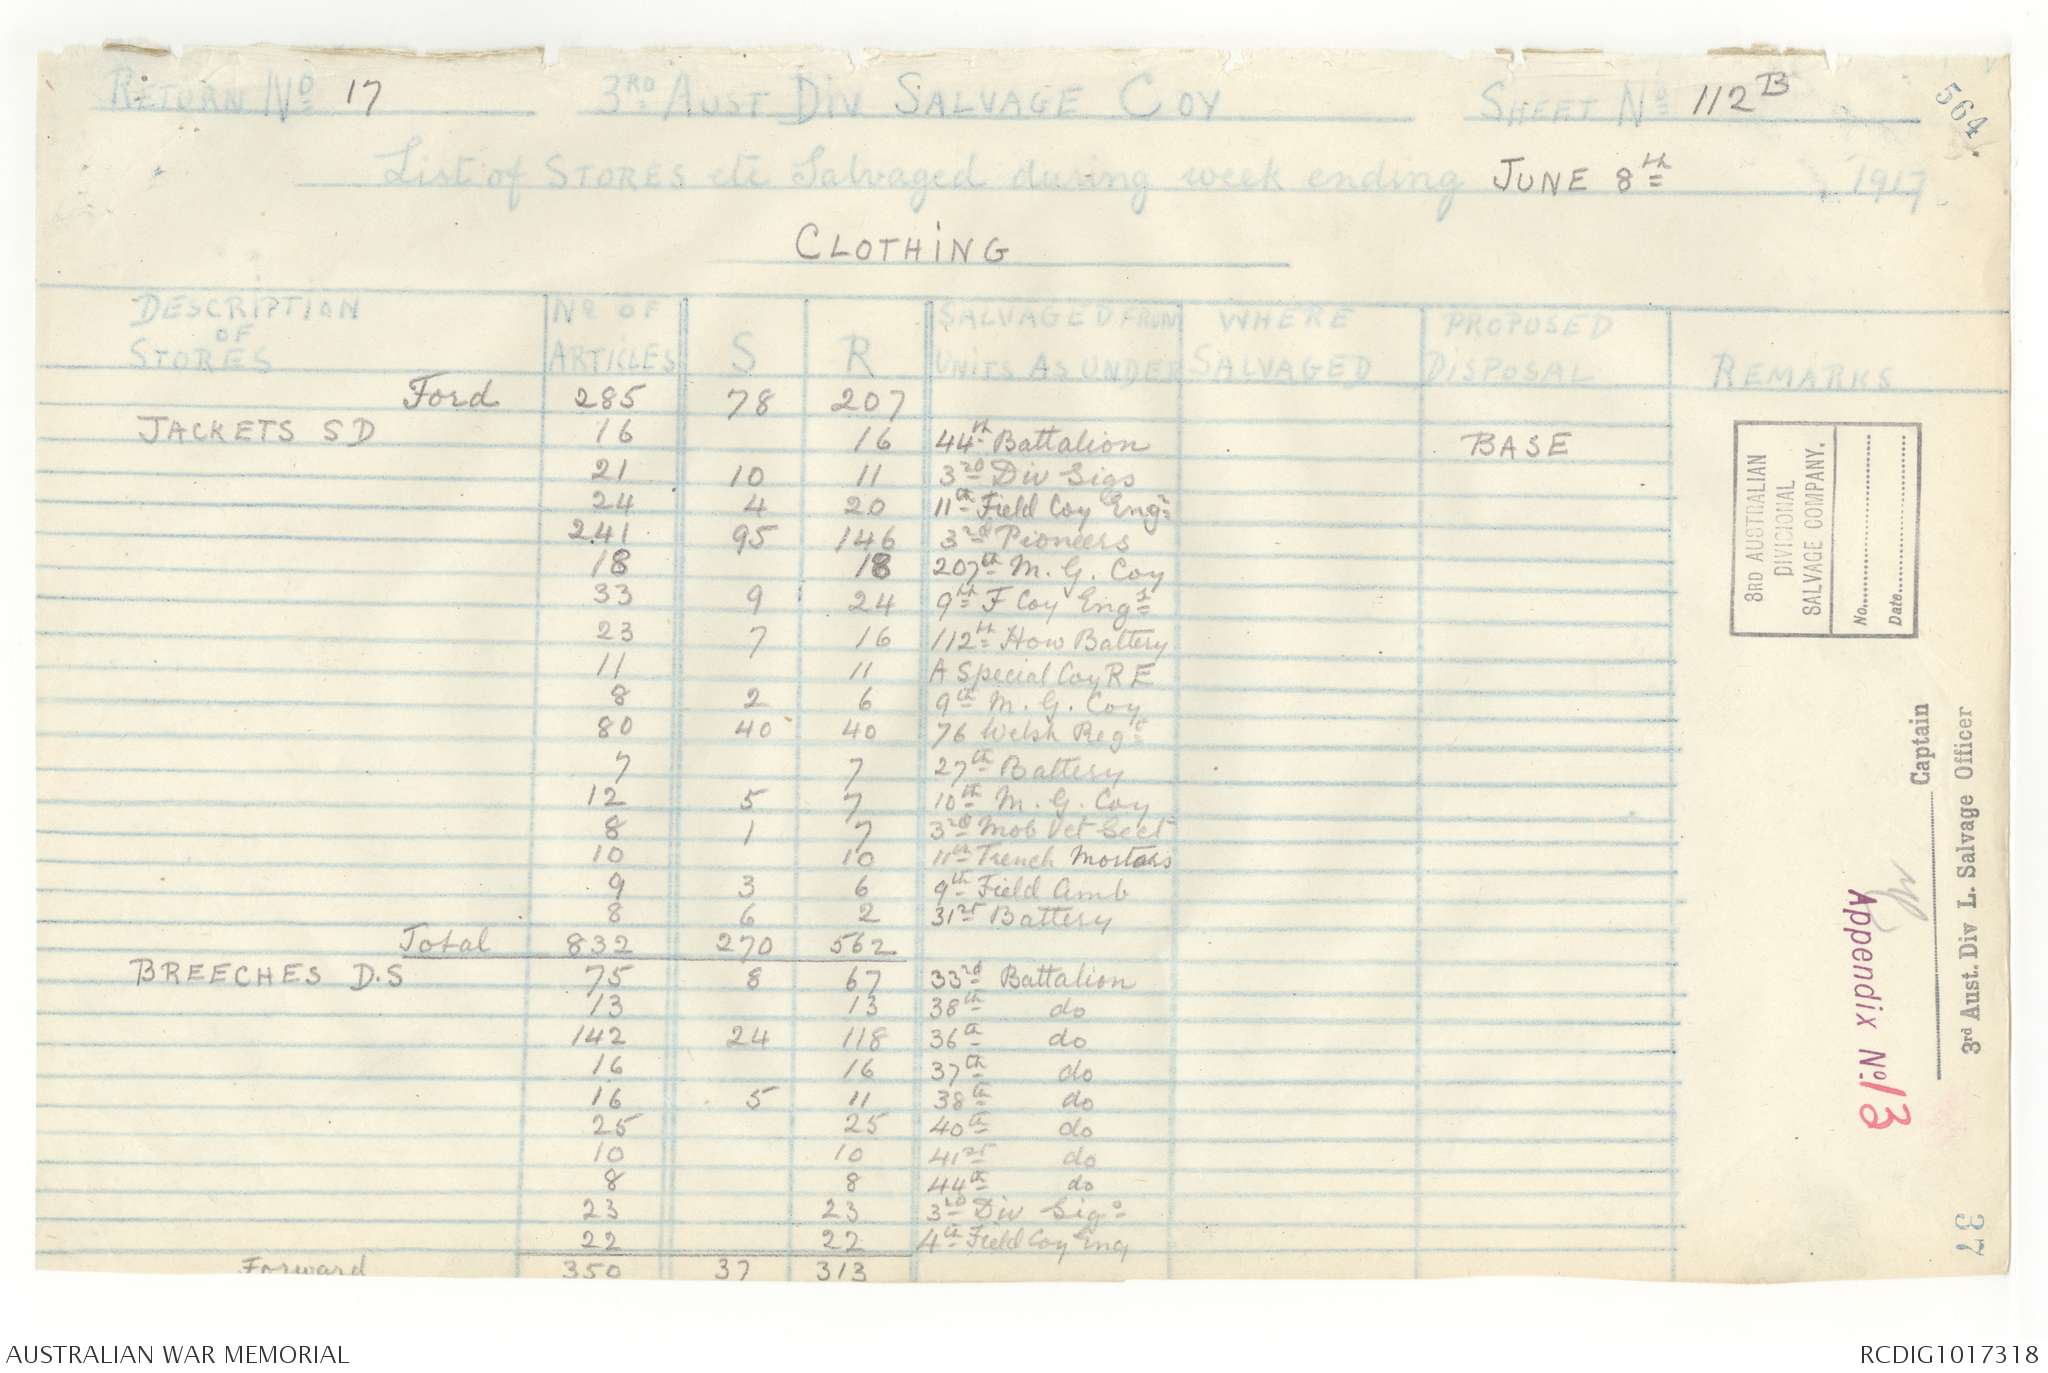 RETURN No 17 3RD AUST DIV SALVAGE COY SHEET No 112B
564
List of STORES etc Salvaged during week ending JUNE 8th, 1917
CLOTHING
DESCRIPTION OF STORES No OF ARTICLES S R SALVAGED FROM UNITS AS UNDER WHERE SALVAGED PROPOSED DISPOSAL REMARKS
Ford 285 78 207
JACKETS SD 16 16 44th Battalion BASE
21 10 11 3RD Div Sigs
24 4 20 11th Field Coy Engrs
241 95 146 3rd Pioneers
18 18 207th M. G. Coy
33 9 24 9th F Coy Engs
23 7 16 112th How Battery
11 11 A Special Coy RE
8 2 6 9th M. G. Coy
80 40 40 76 Welsh Regt
7 7 27th Battery
12 5 7 10th M. G. Coy
8 1 7 3RD Mob Vet Sect
10 10 11th Trench Mortars
9 3 6 9th Field Amb
8 6 2 31st Battery
Total 832 270 562
BREECHES D.S 75 8 67 33rd Battalion
13 13 38th do
142 24 118 36th do
16 16 37th do
16 5 11 38th do
25 25 40th do
10 10 41st do
8 8 44th do
23 23 3RD Div Sigs
22 22 4th Field Coy Eng
Forward 350 37 313
3RD AUSTRALIAN
DIVICIONAL
SALVAGE COMPANY.
No.
Date
Captain
3rd Aust. Div L. Salvage Officer
Appendix No. 13
37
AUSTRALIAN WAR MEMORIAL
RCDIG1017318